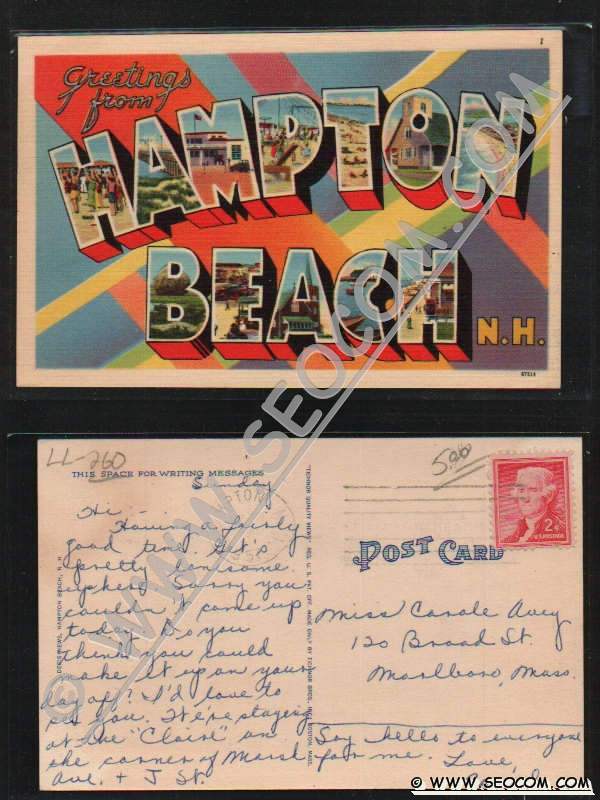 1
Greetings
from
HAMPTON
BEACH
N.H.
67214
© WWW.SEOCOM.COM
LL-260
5.00
THIS SPACE FOR WRITING MESSAGES
Sunday
Hi -
Having a fairly
good time. Get's
pretty lonesome
up here. Sorry you
couldn't come up
today. Do you
think you could
make it up on your
day off? I'd love to
see you. We're staying
at the "Claire" on
the corner of Marsh
Ave. + J St.
POST CARD
2¢
U.S. POSTAGE
Miss Carole Avey
120 Broad St.
Marlboro, Mass.
Say hello to everyone
for me. Love,
© WWW.SEOCOM.COM